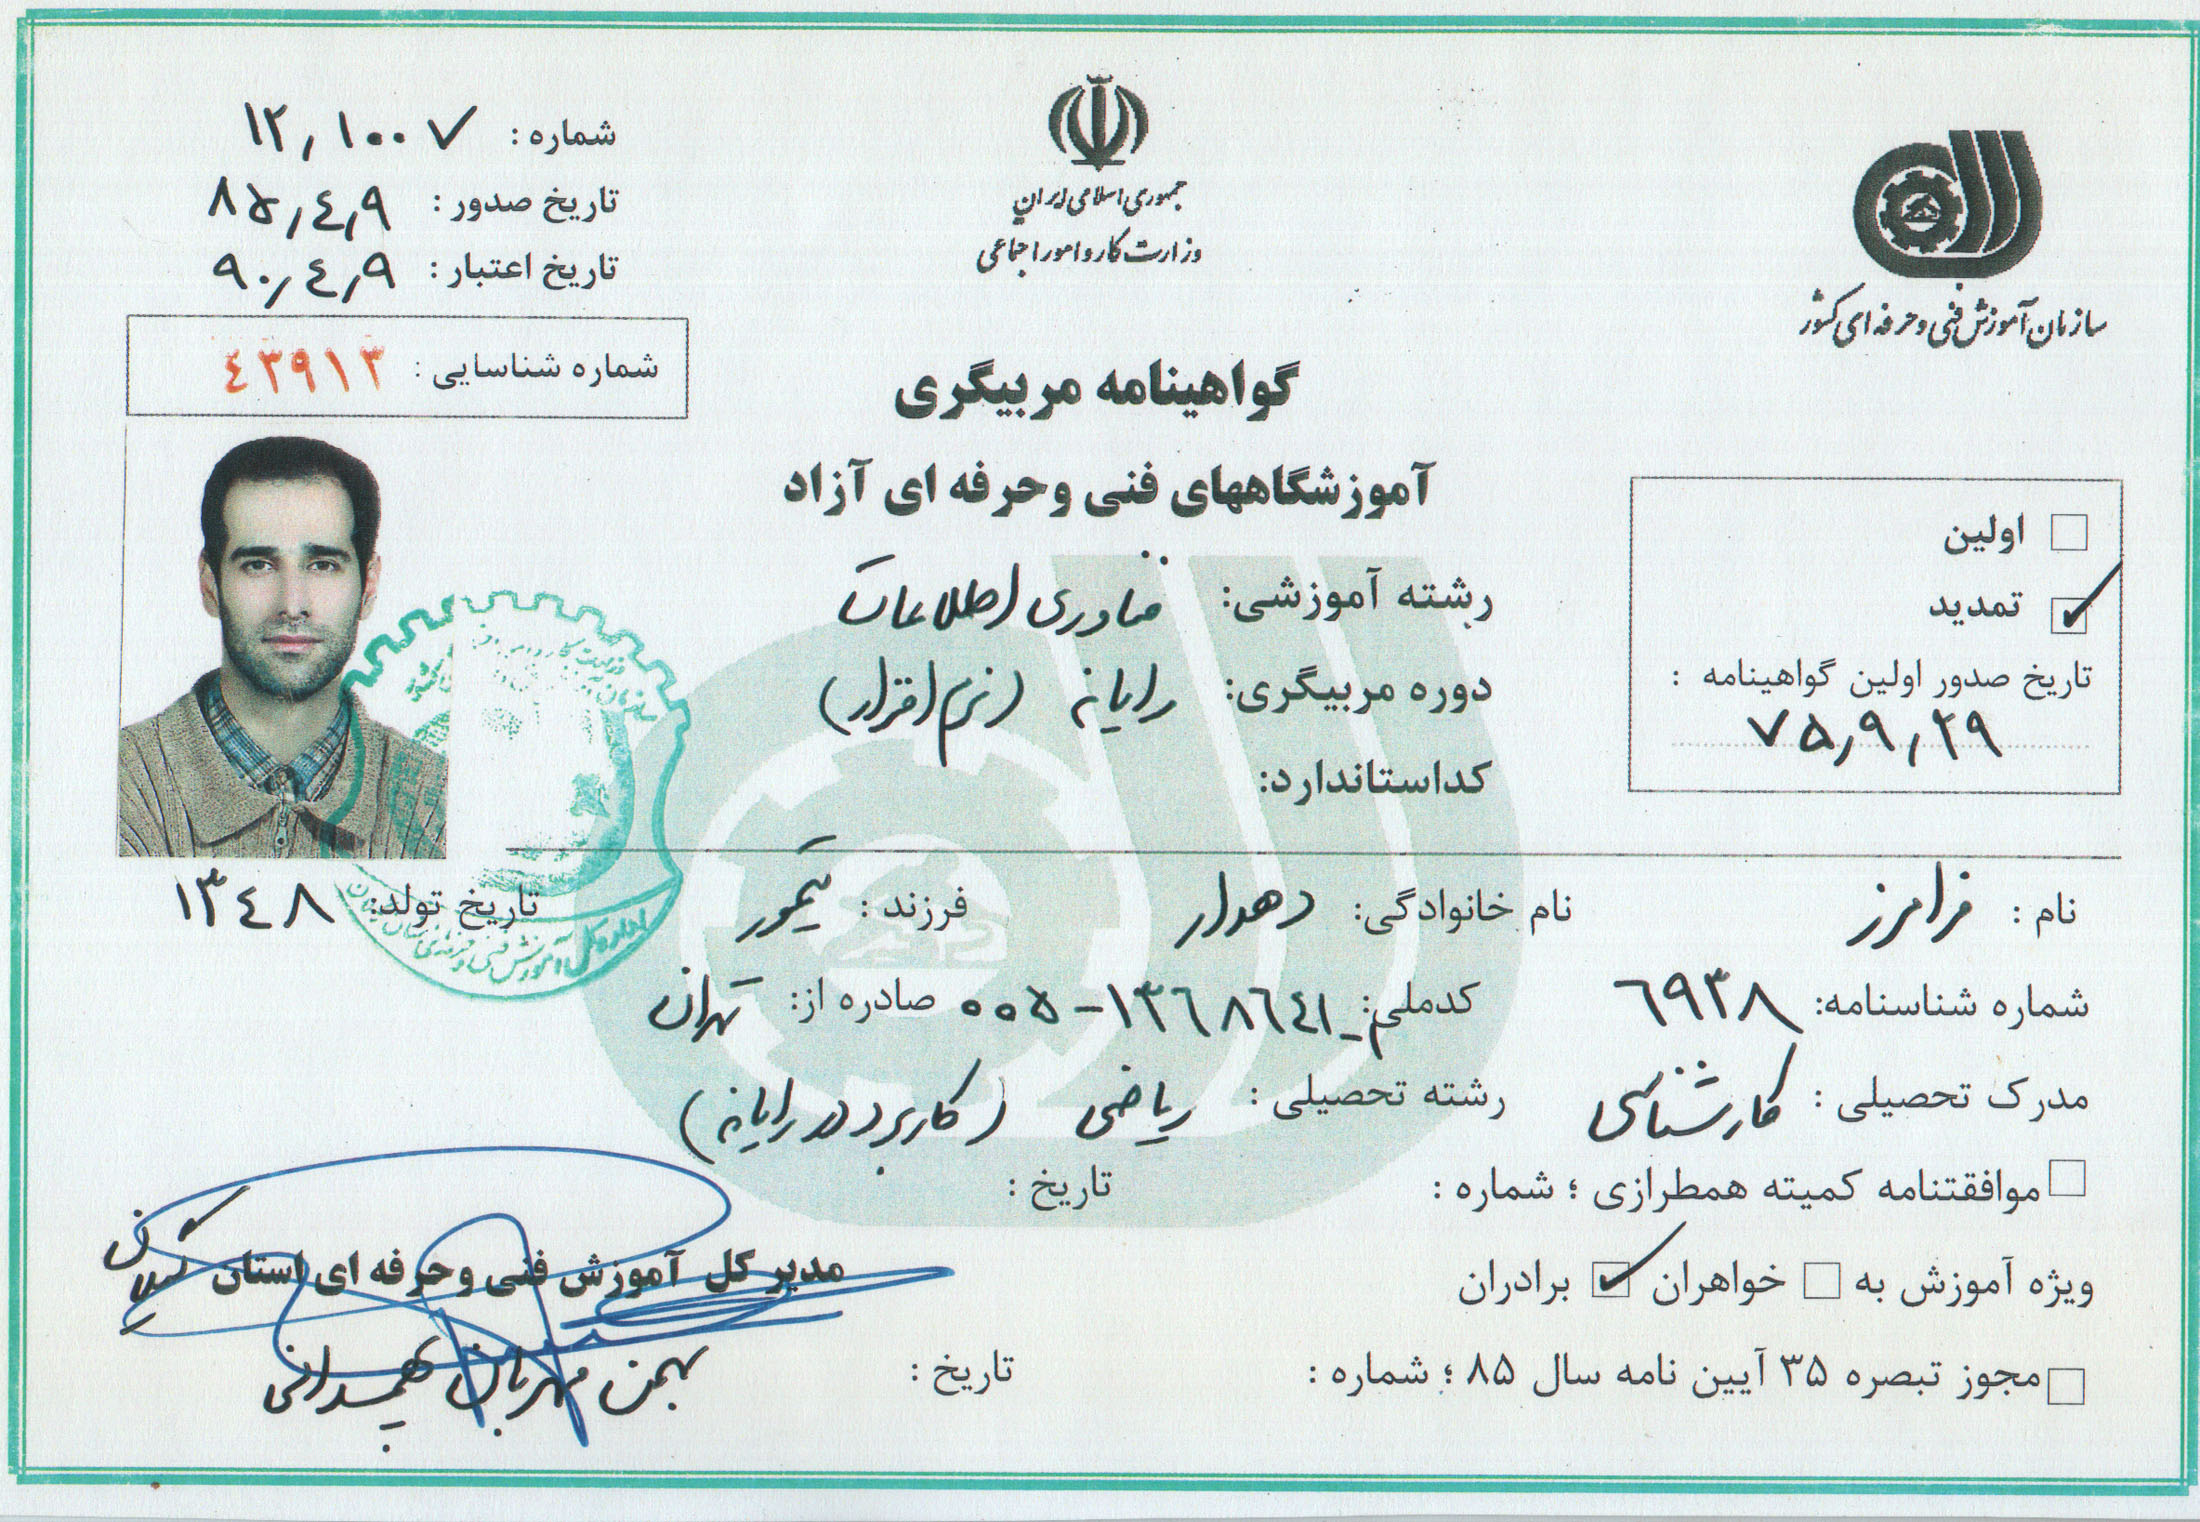 جمهوری اسلامی ایران
وزارت کار و امور اجتماعی
سازمان آموزش فنی و حرفه ای کشور
شماره : ۱۲٫۱۰۰۷
تاریخ صدور : ۸۵٫۴٫۹
تاریخ اعتبار : ۹۰٫۴٫۹
شماره شناسایی : ۴۳۹۱۳
گواهینامه مربیگری
آموزشگاههای فنی و حرفه ای آزاد
اولین
تمدید
تاریخ صدور اولین گواهینامه :
۷۵٫۹٫۲۹
رشته آموزشی: فناوری اطلاعات
دوره مربیگری: رایانه (نرم افزار)
کداستاندارد:
نام : فرامرز نام خانوادگی: دهدار فرزند : تیمور تاریخ تولد: ۱۳۴۸
شماره شناسنامه: ۶۹۳۸ کدملی: صادره از: تهران
مدرک تحصیلی : کارشناسی رشته تحصیلی : ریاضی (کاربرد در رایانه)
موافقتنامه کمیته همطرازی ؛ شماره : تاریخ :
ویژه آموزش به خواهران برادران
مدیر کل آموزش فنی و حرفه ای استان گیلان
مجوز تبصره ۳۵ آیین نامه سال ۸۵ ؛ شماره : تاریخ :
بهمن مهربان
اداره کل آموزش فنی و حرفه ای استان گیلان